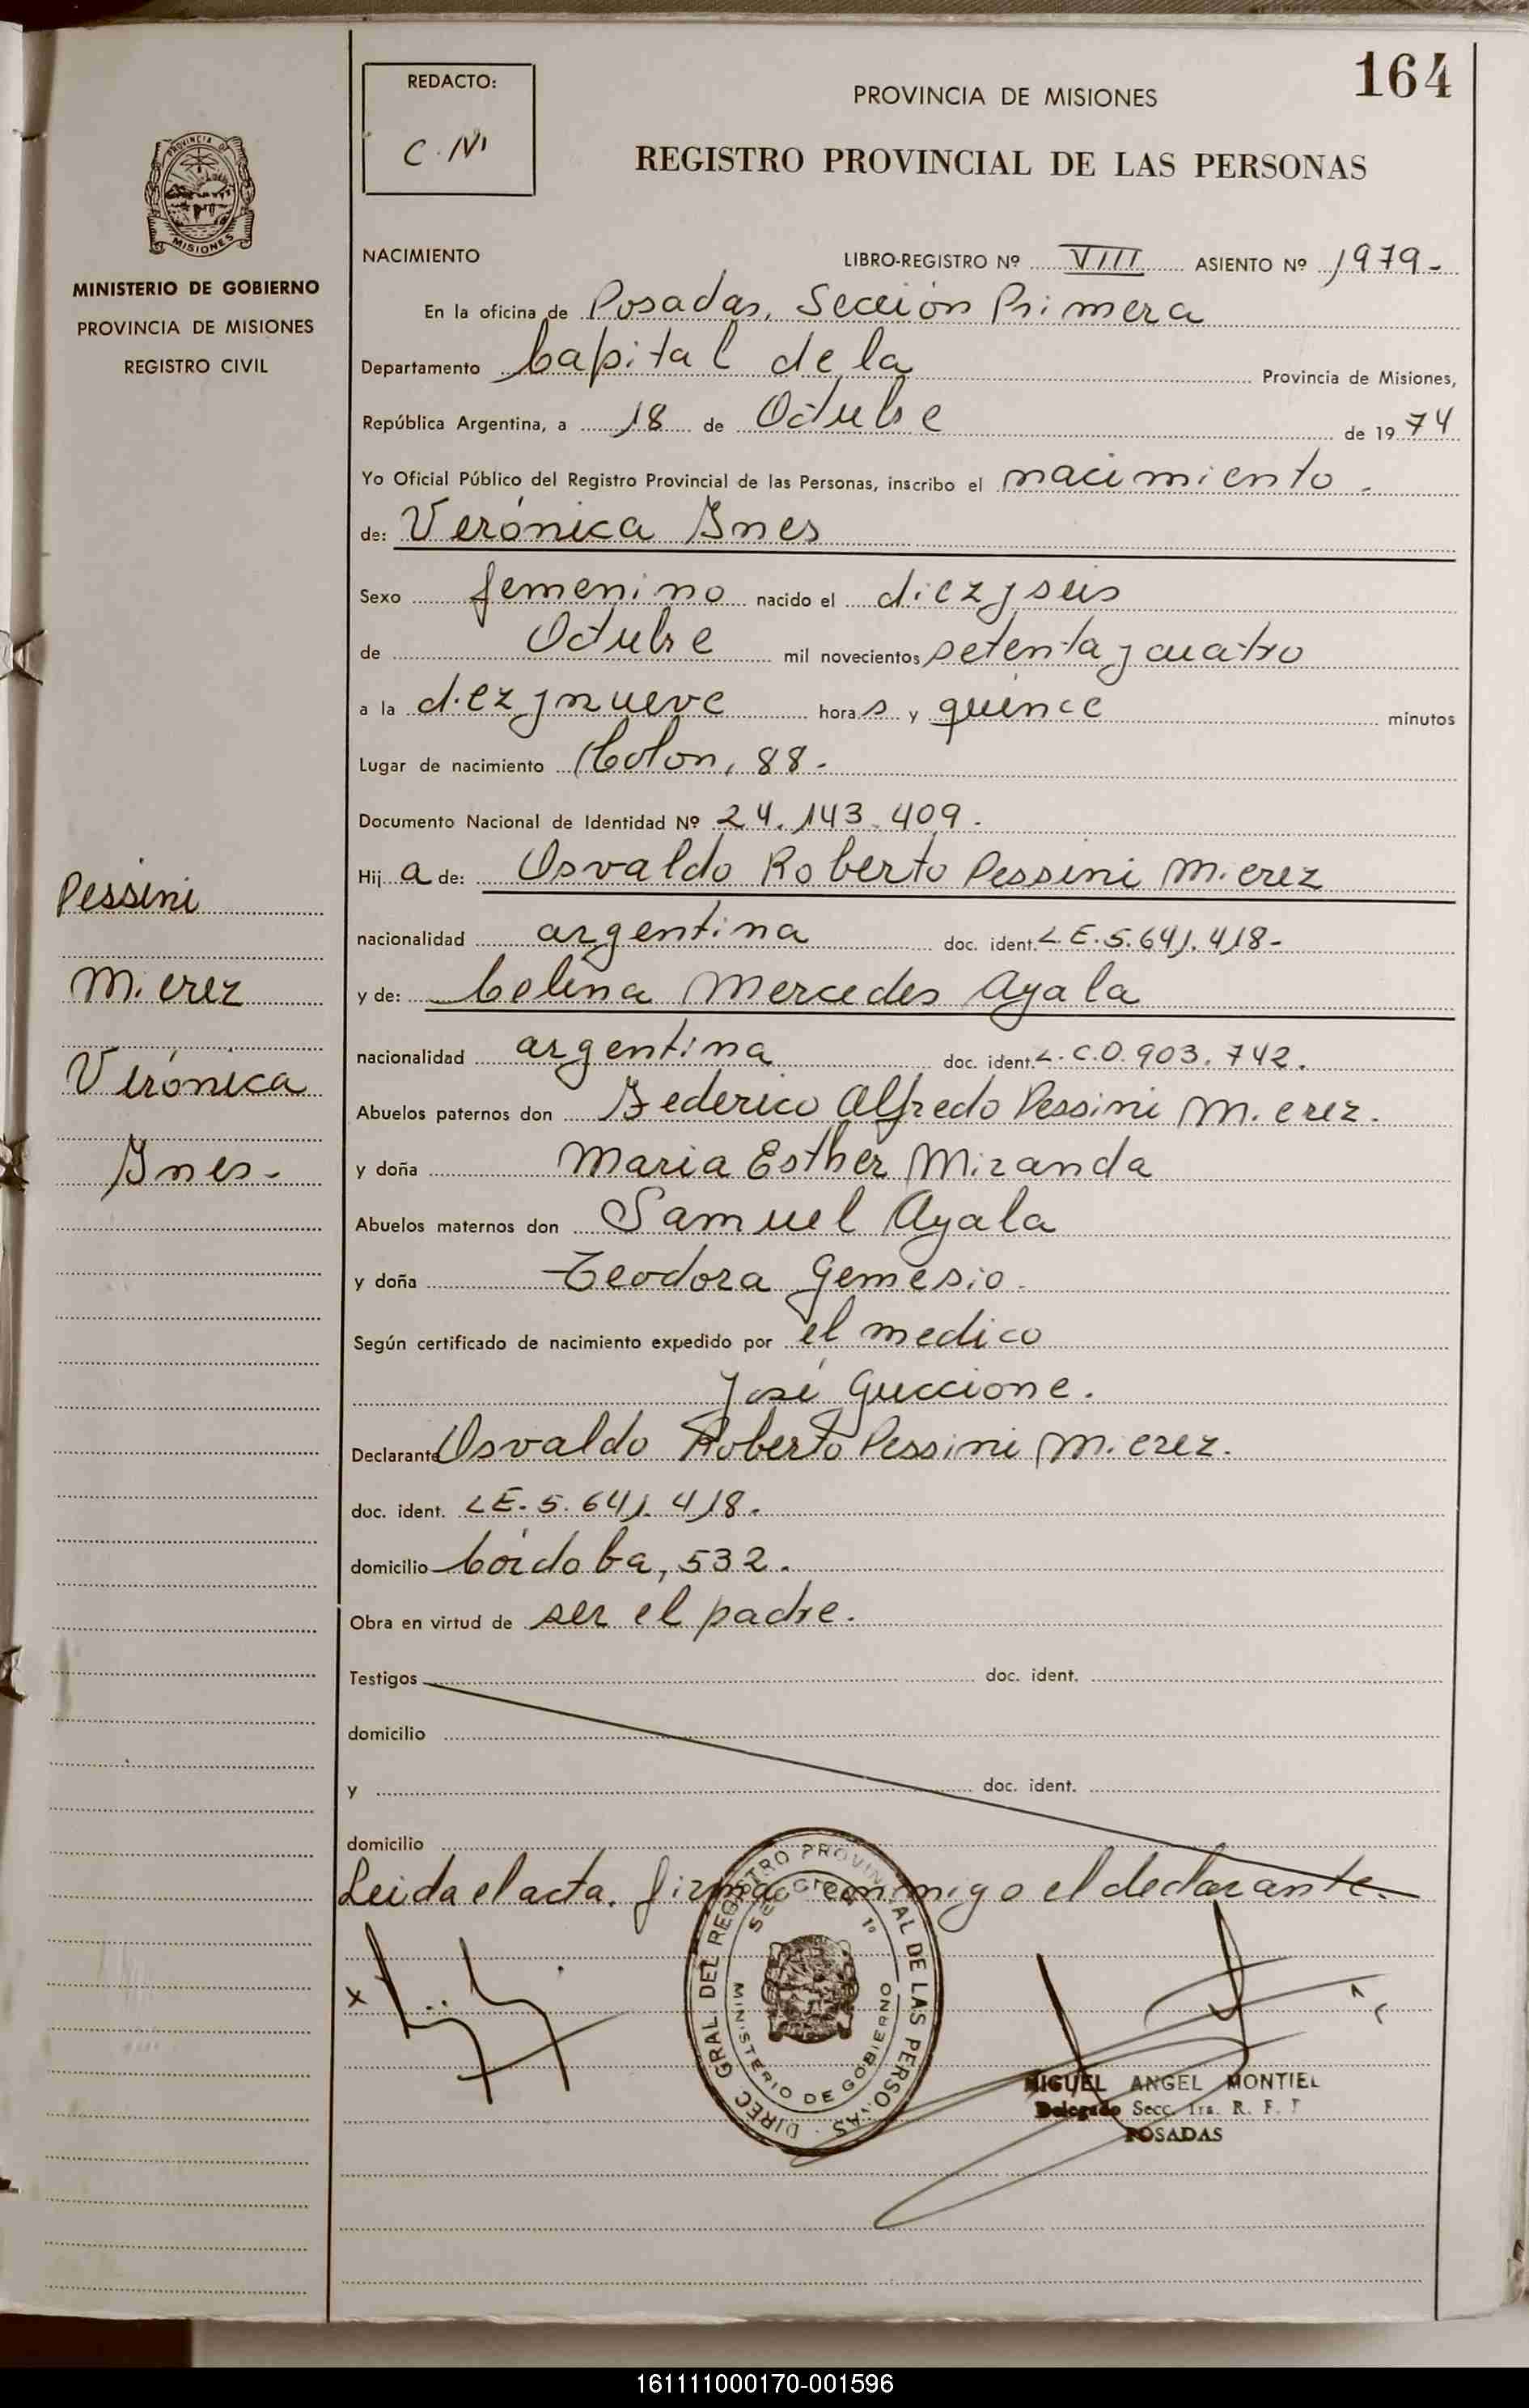 164
REDACTO:
C. N.
PROVINCIA DE MISIONES
REGISTRO PROVINCIAL DE LAS PERSONAS
PROVINCIA DE
MISIONES
MINISTERIO DE GOBIERNO
PROVINCIA DE MISIONES
REGISTRO CIVIL
NACIMIENTO LIBRO-REGISTRO Nº VIII ASIENTO Nº 1979-
En la oficina de Posadas, Sección Primera
Departamento Capital de la Provincia de Misiones,
República Argentina, a 18 de Octubre de 19 74
Yo Oficial Público del Registro Provincial de las Personas, inscribo el nacimiento.
de: Verónica Ines
Sexo femenino nacido el diez y seis
de Octubre mil novecientos setenta y cuatro
a la diez y nueve hora s y quince minutos
Lugar de nacimiento Colon, 88.
Documento Nacional de Identidad Nº 24.143.409.
Hij a de: Osvaldo Roberto Pessini Mierez
nacionalidad argentina doc. ident. L.E. 5.641.418-
y de: Celina Mercedes Ayala
nacionalidad argentina doc. ident. L.C.0.903.742.
Abuelos paternos don Federico Alfredo Pessini Mierez.
y doña Maria Esther Miranda
Abuelos maternos don Samuel Ayala
y doña Teodora Gemesio.
Según certificado de nacimiento expedido por el medico
José Guccione.
Declarante Osvaldo Roberto Pessini Mierez.
doc. ident. LE. 5.641.418.
domicilio Córdoba, 532.
Obra en virtud de ser el padre.
Testigos doc. ident.
domicilio
y doc. ident.
domicilio
Leida el acta, firma conmigo el declarante.
Pessini
Mierez
Verónica
Ines-
x
DIREC. GRAL. DEL REGISTRO PROVINCIAL DE LAS PERSONAS
SECCION 1º
MINISTERIO DE GOBIERNO
MIGUEL ANGEL MONTIEL
Delegado Secc. 1ra. R. P.
POSADAS
161111000170-001596